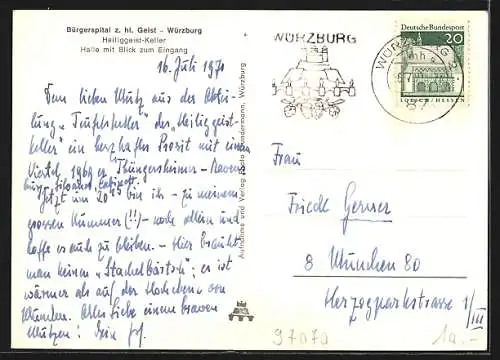 Bürgerspital z. hl. Geist - Würzburg
Heiliggeist-Keller
Halle mit Blick zum Eingang
16. Juli 1970
Dem lieben Mutz aus der Abtei-
lung "Teufelskeller" des "Heiliggeist-
kellers" ein herzhaftes Prosit mit einem
Viertel 1969 er Thüngersheimer-Ravens
burg, Silvaner, Kabinett.
Jetzt um 20 15 bin ich - zu meinem
grossen Kummer (!!) - noch allein und
hoffe es auch zu bleiben. - Hier braucht
man keinen "Stachelbärtsch"; es ist
wärmer als auf der
München. Alles Liebe einem braven
Mutzen! Dein
Aufnahme und Verlag Gundermann, Würzburg
WÜRZBURG
WÜRZBURG 2
Deutsche Bundespost
20
LORSCH / HESSEN
Frau
Friedl Gerner
8 München 80
Herzogparkstrasse 1/III
97070
1a.-